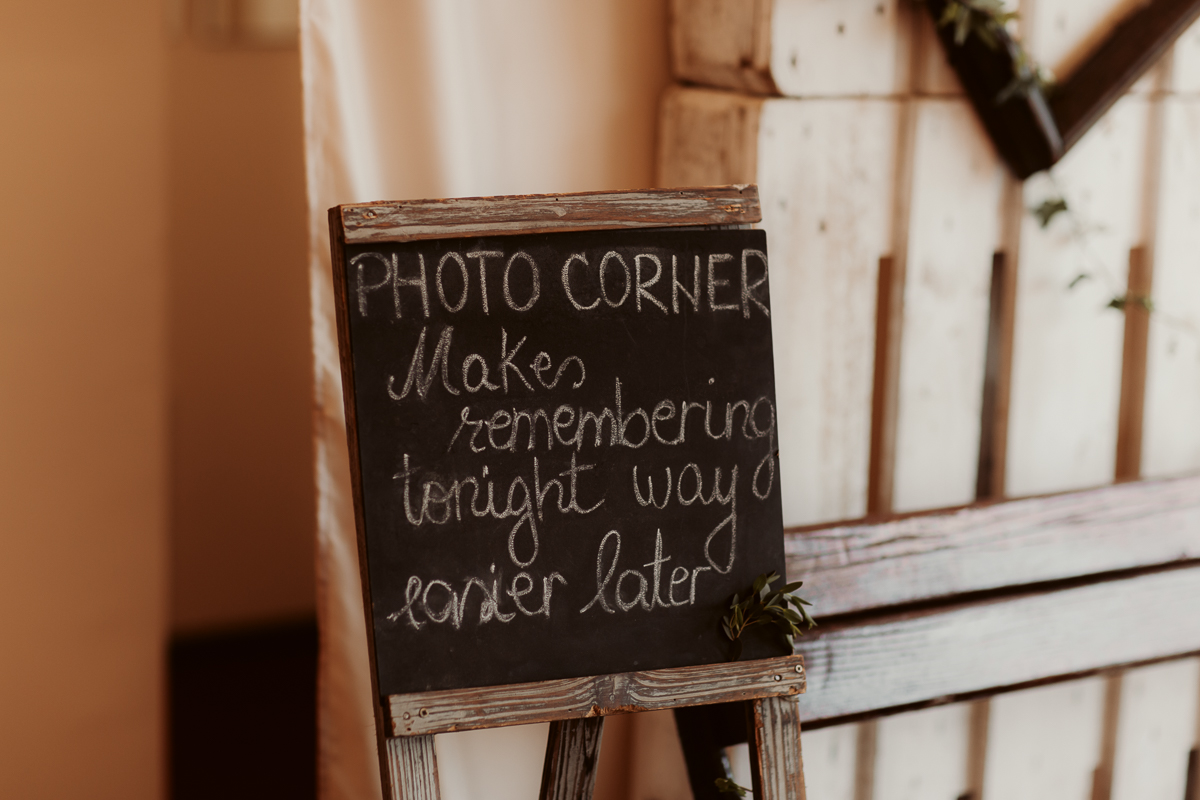 PHOTO CORNER
Makes
remembering
tonight way
easier later